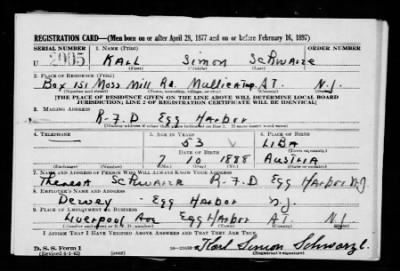 REGISTRATION CARD—(Men born on or after April 28, 1877 and on or before February 16, 1897)
SERIAL NUMBER 1. NAME (Print) ORDER NUMBER
U 2005 KARL SIMON SCHWARZE
(First) (Middle) (Last)
2. PLACE OF RESIDENCE (Print)
Box 151 Moss Mill Rd. Mullica Twp AT. N.J.
(Number and street) (Town, township, village, or city) (County) (State)
[THE PLACE OF RESIDENCE GIVEN ON THE LINE ABOVE WILL DETERMINE LOCAL BOARD
JURISDICTION; LINE 2 OF REGISTRATION CERTIFICATE WILL BE IDENTICAL]
3. MAILING ADDRESS
R-F-D Egg Harbor
[Mailing address if other than place indicated on line 2. If same insert word same]
4. TELEPHONE 5. AGE IN YEARS 6. PLACE OF BIRTH
53 LIBA
DATE OF BIRTH (Town or county)
7 10 1888 Austria
(Exchange) (Number) (Mo.) (Day) (Yr.) (State or country)
7. NAME AND ADDRESS OF PERSON WHO WILL ALWAYS KNOW YOUR ADDRESS
Theresa Schwarze R-F-D Egg Harbor N.J.
8. EMPLOYER'S NAME AND ADDRESS
Dewey Egg Harbor N.J.
9. PLACE OF EMPLOYMENT OR BUSINESS
Liverpool Ave Egg Harbor AT. N.J.
(Number and street or R. F. D. number) (Town) (County) (State)
I AFFIRM THAT I HAVE VERIFIED ABOVE ANSWERS AND THAT THEY ARE TRUE.
D. S. S. Form 1
(Revised 4-1-42) Karl Simon Schwarze
(Registrant's signature)